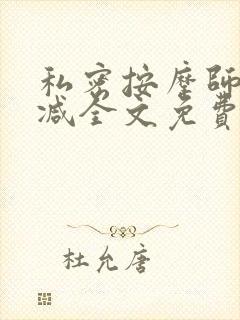 私密按摩師
减全文免費
杜允唐